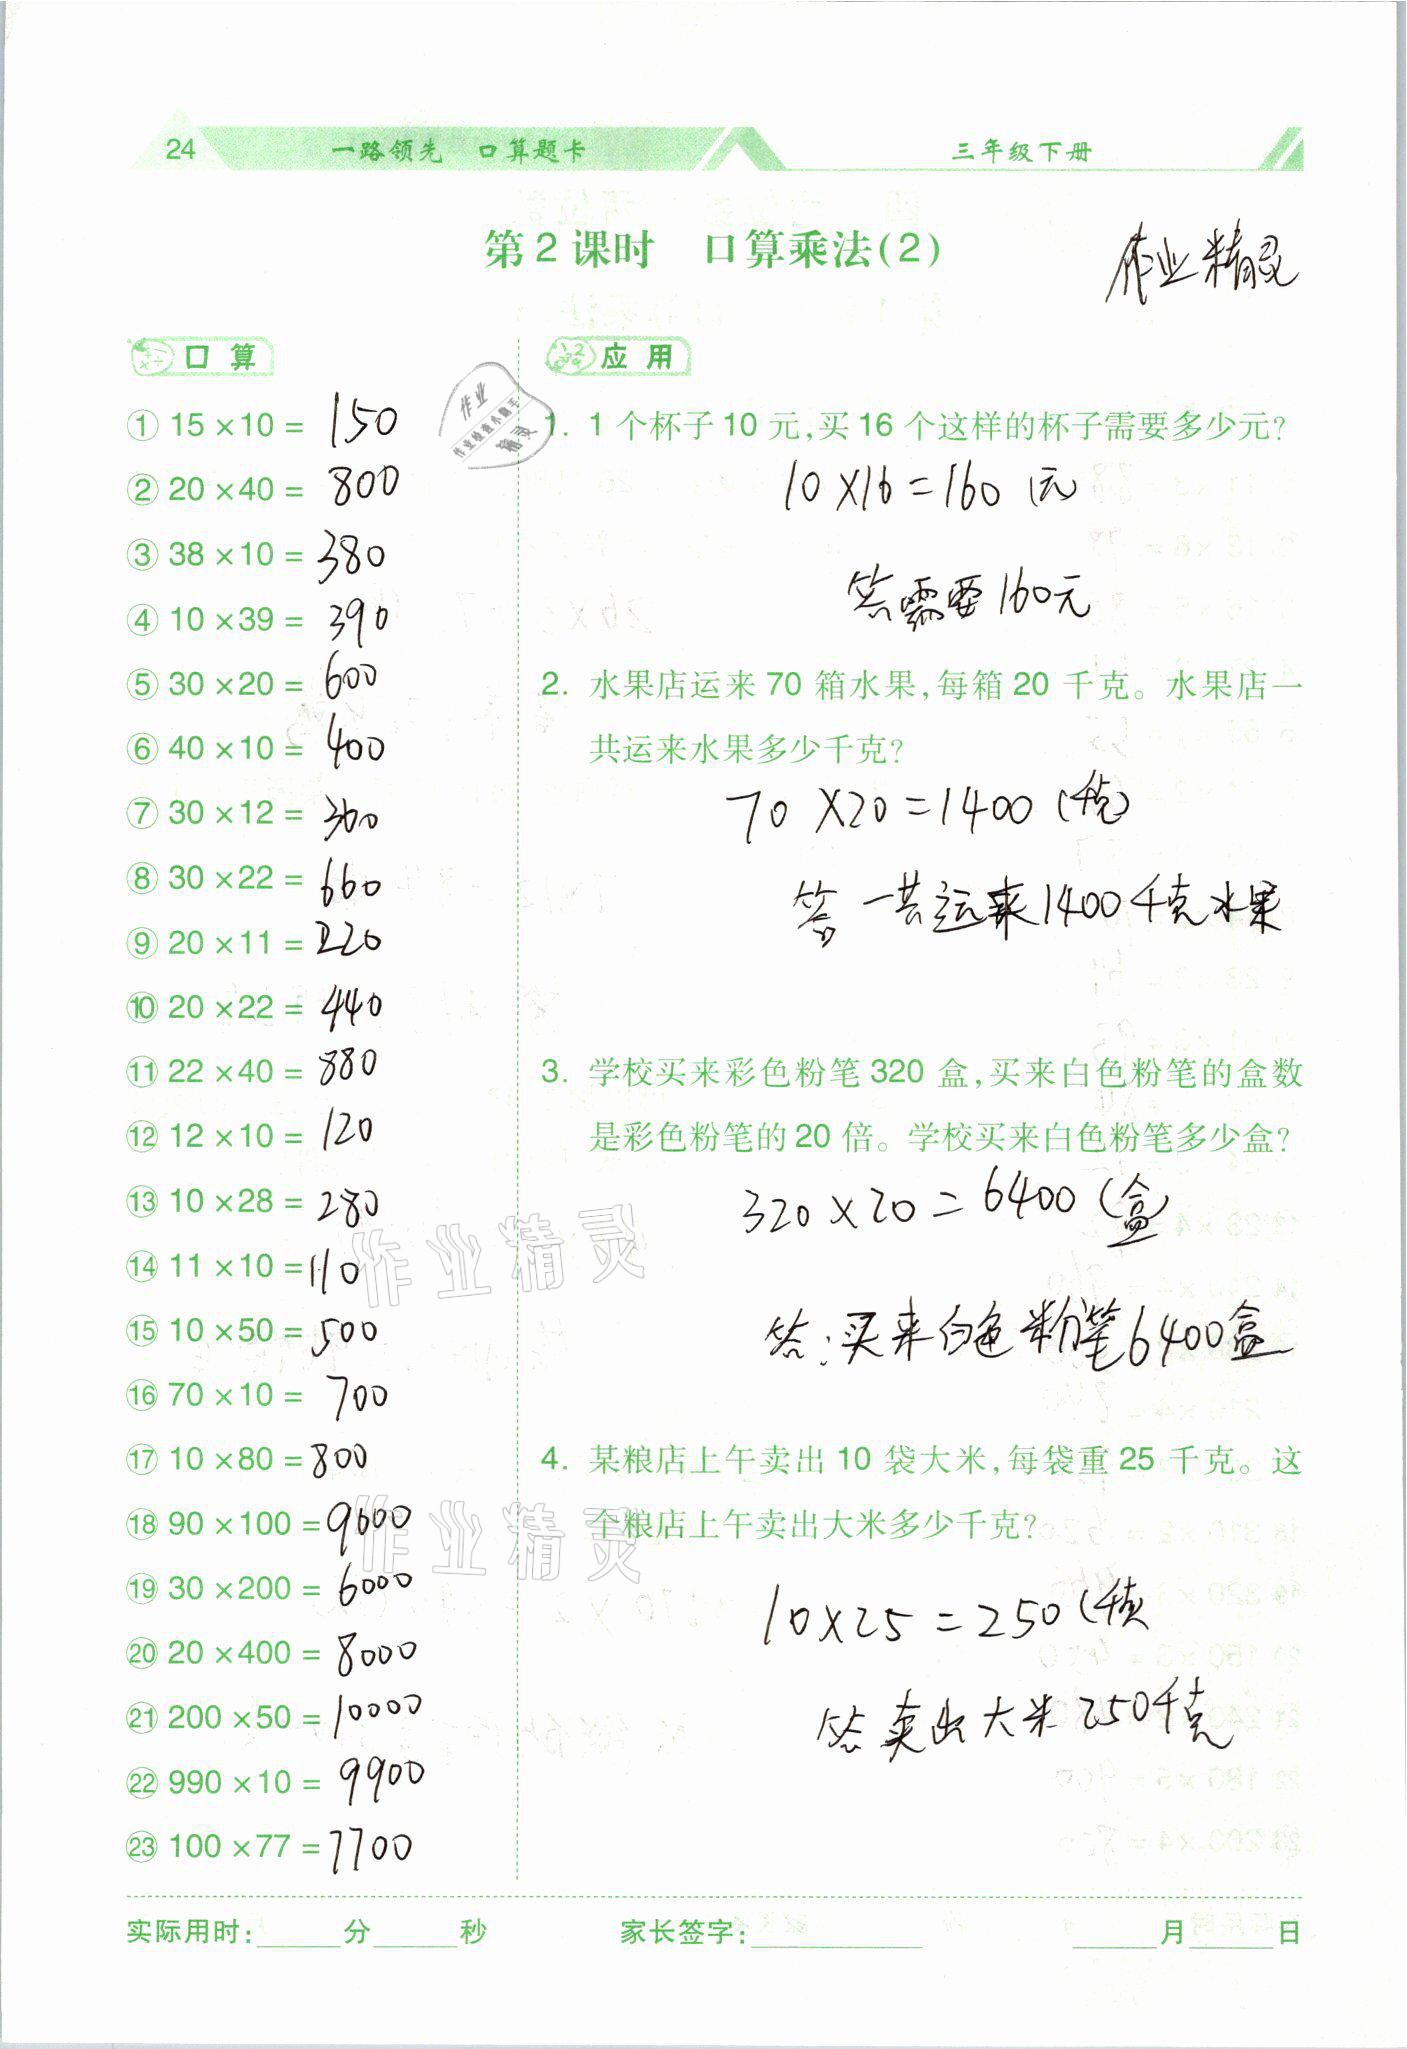 24 一路领先 口算题卡 三年级下册
第2课时 口算乘法(2)
作业精灵
口算
① 15×10= 150
② 20×40= 800
③ 38×10= 380
④ 10×39= 390
⑤ 30×20= 600
⑥ 40×10= 400
⑦ 30×12= 360
⑧ 30×22= 660
⑨ 20×11= 220
⑩ 20×22= 440
⑪ 22×40= 880
⑫ 12×10= 120
⑬ 10×28= 280
⑭ 11×10= 110
⑮ 10×50= 500
⑯ 70×10= 700
⑰ 10×80= 800
⑱ 90×100= 9000
⑲ 30×200= 6000
⑳ 20×400= 8000
㉑ 200×50= 10000
㉒ 990×10= 9900
㉓ 100×77= 7700
应用
1. 1个杯子10元,买16个这样的杯子需要多少元?
10×16=160(元
答需要160元
2. 水果店运来70箱水果,每箱20千克。水果店一
共运来水果多少千克?
70×20=1400(千克)
答 一共运来1400千克水果
3. 学校买来彩色粉笔320盒,买来白色粉笔的盒数
是彩色粉笔的20倍。学校买来白色粉笔多少盒?
320×20=6400(盒
答:买来白色粉笔6400盒
4. 某粮店上午卖出10袋大米,每袋重25千克。这
个粮店上午卖出大米多少千克?
10×25=250(千克
答 卖出大米250千克
作业
作业检查小助手
精灵
作业精灵
作业精灵
实际用时:______分______秒 家长签字:____________ ______月______日